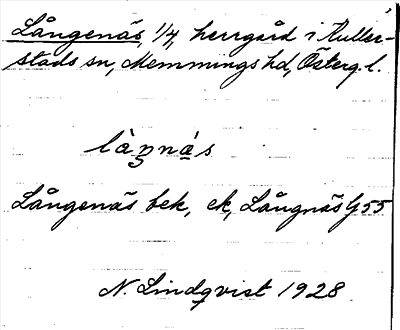 Långenäs, 1/4, herrgård i Kuller-
stads sn, Memmings hd, Österg. l.
làŋnás
Långenäs bek, ek, Långnäs G 55
N. Lindqvist 1928